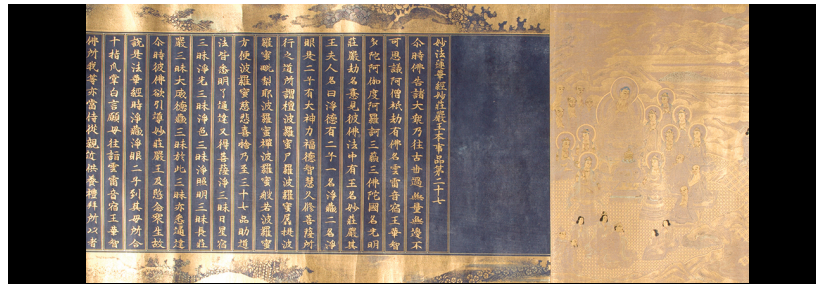 妙法蓮華經妙莊嚴王本事品第二十七
尒時佛告諸大衆乃往古世過無量無邊不
可思議阿僧祇劫有佛名雲雷音宿王華智
多陀阿伽度阿羅訶三藐三佛陀國名光明
莊嚴劫名憙見彼佛法中有王名妙莊嚴其
王夫人名曰淨德有二子一名淨藏二名淨
眼是二子有大神力福德智慧久修菩薩所
行之道所謂檀波羅蜜尸羅波羅蜜羼提波
羅蜜毗梨耶波羅蜜禪波羅蜜般若波羅蜜
方便波羅蜜慈悲喜捨乃至三十七品助道
法皆悉明了通達又得菩薩淨三昧日星宿
三昧淨光三昧淨色三昧淨照明三昧長莊
嚴三昧大威德藏三昧於此三昧亦悉通達
尒時彼佛欲引導妙莊嚴王及愍念衆生故
說是法華經時淨藏淨眼二子到其母所合
十指爪掌白言願母往詣雲雷音宿王華智
佛所我等亦當侍從親近供養禮拜所以者